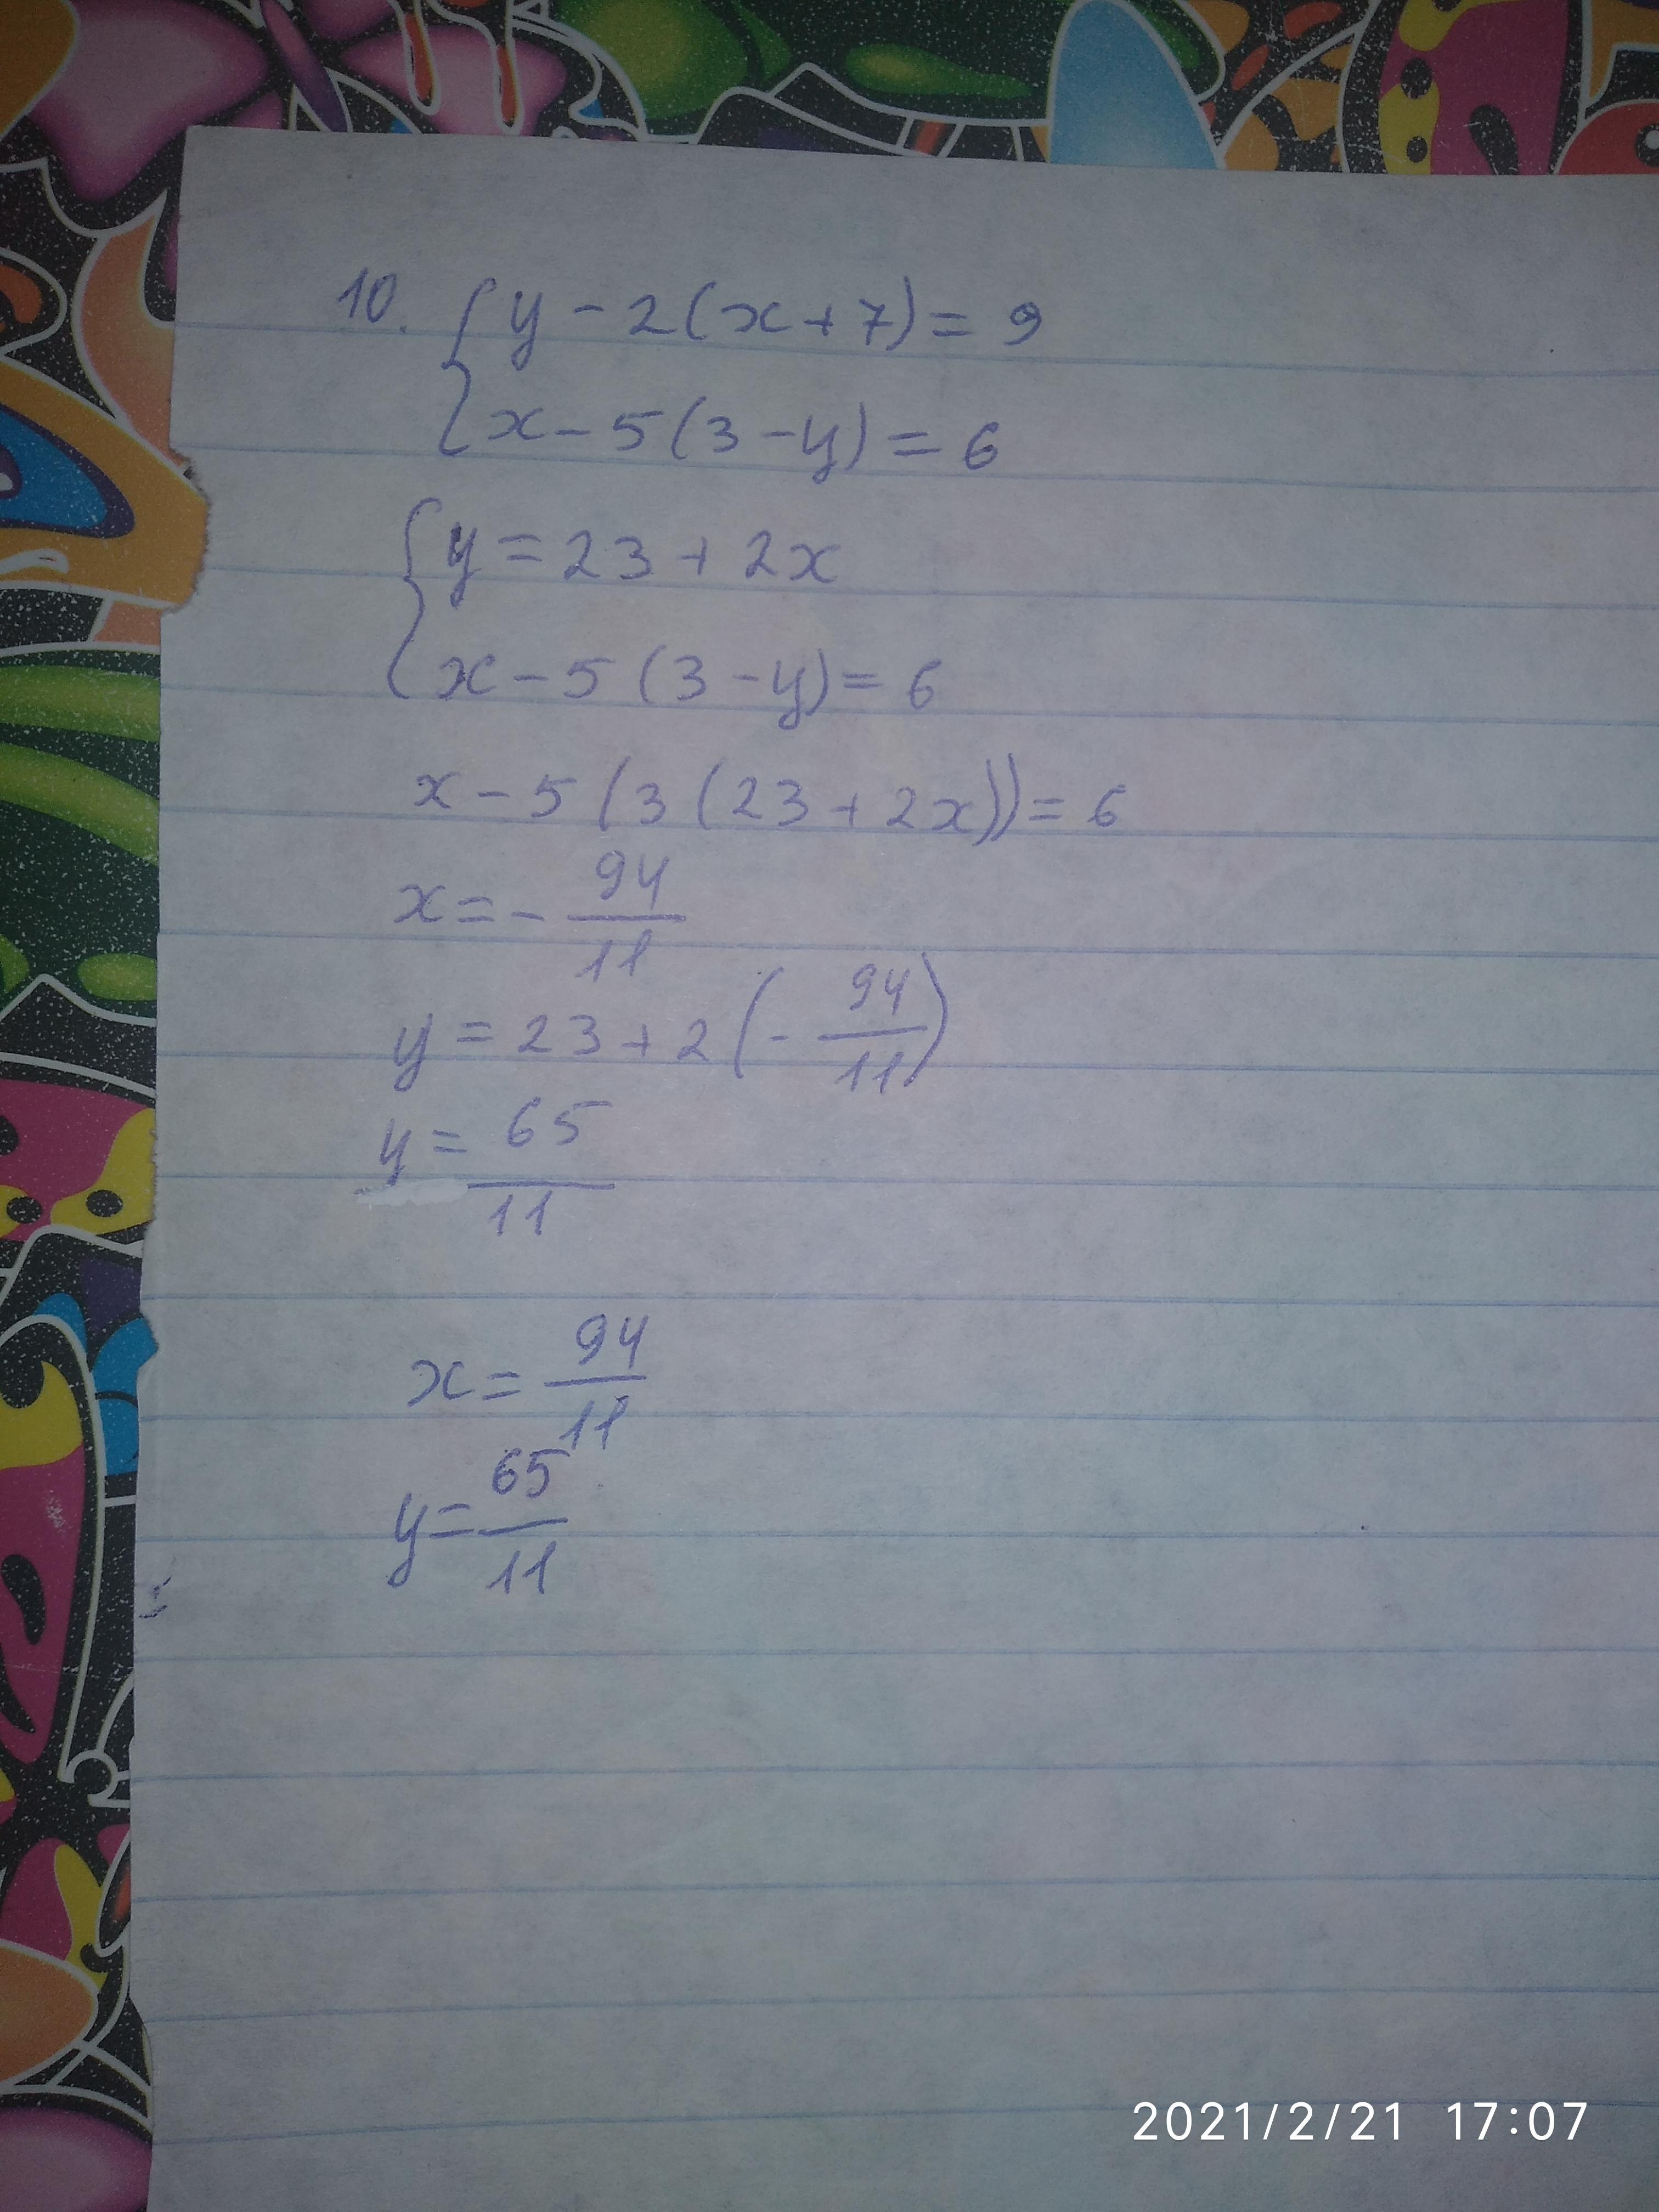 10. { y - 2(x + 7) = 9
x - 5(3 - y) = 6
{ y = 23 + 2x
x - 5(3 - y) = 6
x - 5(3(23 + 2x)) = 6
x = - 94/11
y = 23 + 2(- 94/11)
y = 65/11
x = 94/11
y = 65/11
2021/2/21 17:07